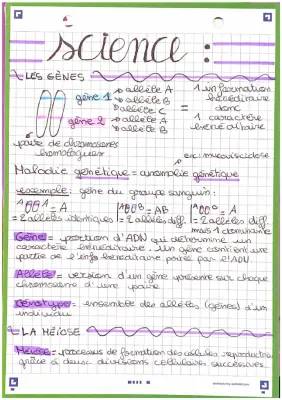 science :
LES GÈNES
gène 1 → allèle A
→ allèle B
→ allèle C
gène 2 → allèle A
→ allèle B
= 1 information
héréditaire
donc
1 caractère
héréditaire
paire de chromosomes
homologues
ex: mucoviscidose
Maladie génétique = anomalie génétique
exemple: gène du groupe sanguin:
= A
= AB
= A
= 2 allèles identiques
= 2 allèles diff.
= 2 allèles diff.
mais 1 dominante
Gène = portion d'ADN qui détermine un
caractère héréditaire. Un gène contient une
partie de l'info héréditaire portée par l'ADN.
Allèle = version d'un gène présente sur chaque
chromosome d'une paire
Génotype = ensemble des allèles (gènes) d'un
individu
LA MÉIOSE
Méiose = processus de formation des cellules reproductrices
grâce à deux divisions cellulaires successives.